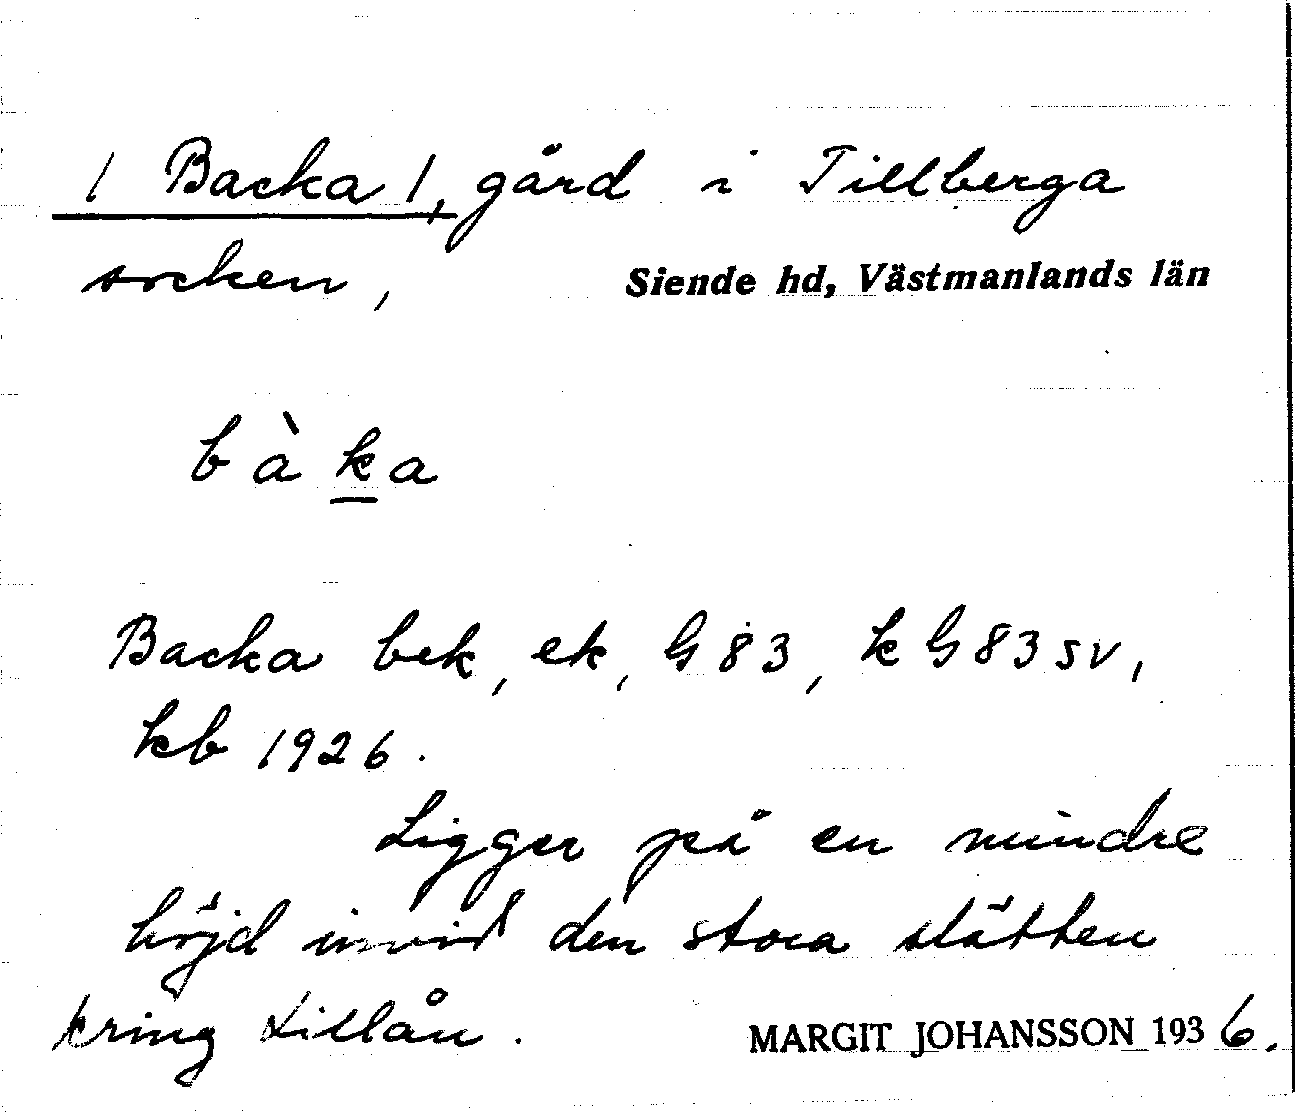 / Backa /, gård i Tillberga
socken, Siende hd, Västmanlands län
bàka
Backa bek, ek, G 83, k G 83 SV,
kb 1926.
Ligger på en mindre
höjd invid den stora slätten
kring Lillån. MARGIT JOHANSSON 1936.